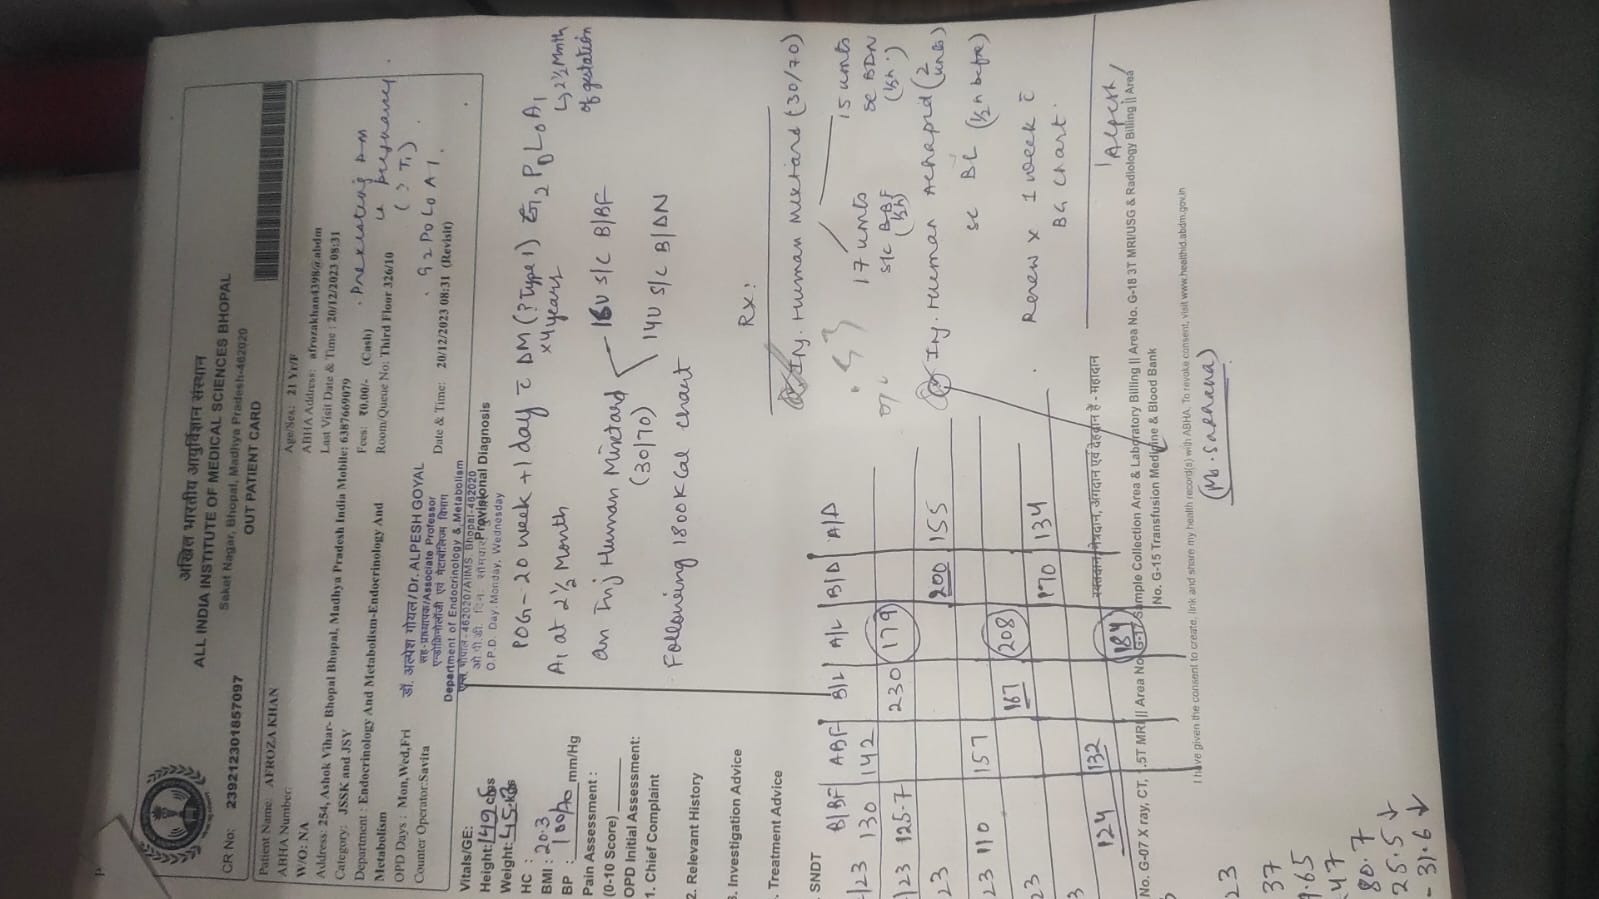 अखिल भारतीय आयुर्विज्ञान संस्थान
ALL INDIA INSTITUTE OF MEDICAL SCIENCES BHOPAL
Saket Nagar, Bhopal, Madhya Pradesh-462020
OUT PATIENT CARD
CR No: 239212301857097
Patient Name: AFROZA KHAN
Age/Sex: 21 Yr/F
ABHA Number:
ABHA Address: afrozakhan4398@abdm
W/O: NA
Last Visit Date & Time : 20/12/2023 08:31
Address: 254, Ashok Vihar- Bhopal Bhopal, Madhya Pradesh India Mobile: 6387669079
Category: JSSK and JSY
Fees: ₹0.00/- (Cash)
Department : Endocrinology And Metabolism-Endocrinology And Metabolism
Room/Queue No: Third Floor 326/10
OPD Days : Mon,Wed,Fri
Date & Time: 20/12/2023 08:31 (Revisit)
Counter Operator:Savita
Preexisting DM
in pregnancy
(? T1)
G2P0L0A1.
डॉ. अल्पेश गोयल/Dr. ALPESH GOYAL
सह-प्राध्यापक/Associate Professor
Department of Endocrinology & Metabolism
एम्स, भोपाल-462020/AIIMS, Bhopal-462020
O.P.D. Day: Monday, Wednesday
Provisional Diagnosis
Vitals/GE:
Height: 149 cms
Weight: 45 kgs
HC :
BMI : 20.3
BP : 100/70 mm/Hg
Pain Assessment :
(0-10 Score)
OPD Initial Assessment:
1. Chief Complaint
2. Relevant History
3. Investigation Advice
. Treatment Advice
POG - 20 week +1 day c̄ DM (? Type 1) G2 P0 L0 A1
x 4 years
↳ 2½ Month
of gestation
A1 at 2½ Month
on Inj Human Mixtard
(30/70)
16U S/C B/BF
14U S/C B/DN
Following 1800 KCal chart
Rx:
Inj. Human Mixtard (30/70)
17 units
s/c BBF
(½h)
15 units
sc BDN
(½h)
Inj. Human Actrapid (2 units)
sc BL (½ h before)
Review x 1 week c̄
BG chart.
Alpesh
SNDT B/BF ABF B/L A/L B/D A/D
/23 130 142 230 179
/23 125.7 200 155
23
23 110 157 167 208
23 170 134
3 124 132 184
रक्तदान, नेत्रदान, अंगदान एवं देहदान है - महादान
No. G-07 X ray, CT, 1.5T MRI || Area No. G-17 Sample Collection Area & Laboratory Billing || Area No. G-18 3T MRI/USG & Radiology Billing || Area
No. G-15 Transfusion Medicine & Blood Bank
I have given the consent to create, link and share my health record(s) with ABHA. To revoke consent, visit www.healthid.abdm.gov.in
23
37
9.65
47
80.7
25.5 ↓
- 31.6 ↓